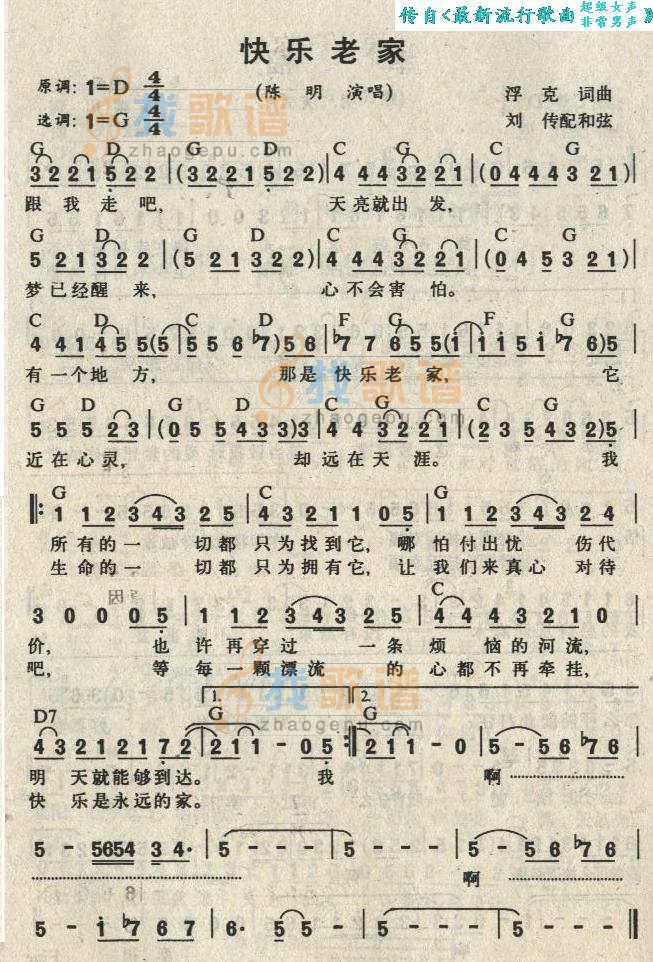 传自<最新流行歌曲 超级女声 非常男声》
快乐老家
原调:1=D 4/4 (陈 明 演唱) 浮 克 词曲
选调:1=G 4/4 刘 传配和弦
G D G D C G C G
3221522|(3221522)|4 443221|(0444321)|
跟我走吧, 天亮就出发,
G D G D C G C G
521322|(521322)|4 443221|(045321)|
梦已经醒来, 心不会害怕。
C D C D F G F G
4 41455(5|556♭7)56|♭777655(i|ii5i♭76)5|
有一个地方, 那是快乐老家, 它
G D G D C G C G
55523|(055433)3|443221|(235432)5|
近在心灵, 却远在天涯。 我
G C G
‖:11234325|4321105|11234324|
所有的一 切都 只为找到它, 哪 怕付出忧 伤代
生命的一 切都 只为拥有它, 让 我们来真心 对待
C
30005|11234325|4443210|
价, 也 许再穿过 一条 烦 恼的河流,
吧, 等 每一颗漂流 的 心都不再牵挂,
D7 1. G 2. G
43212172|211-05:‖211-0|5-56♭76|
明 天就能够到达。 我 啊
快 乐是永远的家。
5-565434·|5---|5---|5-56♭76|
啊
5-i♭767|6·551|5---|5---‖
找歌谱
zhaogepu.com
找歌谱
zhaogepu.com
找歌谱
zhaogepu.com